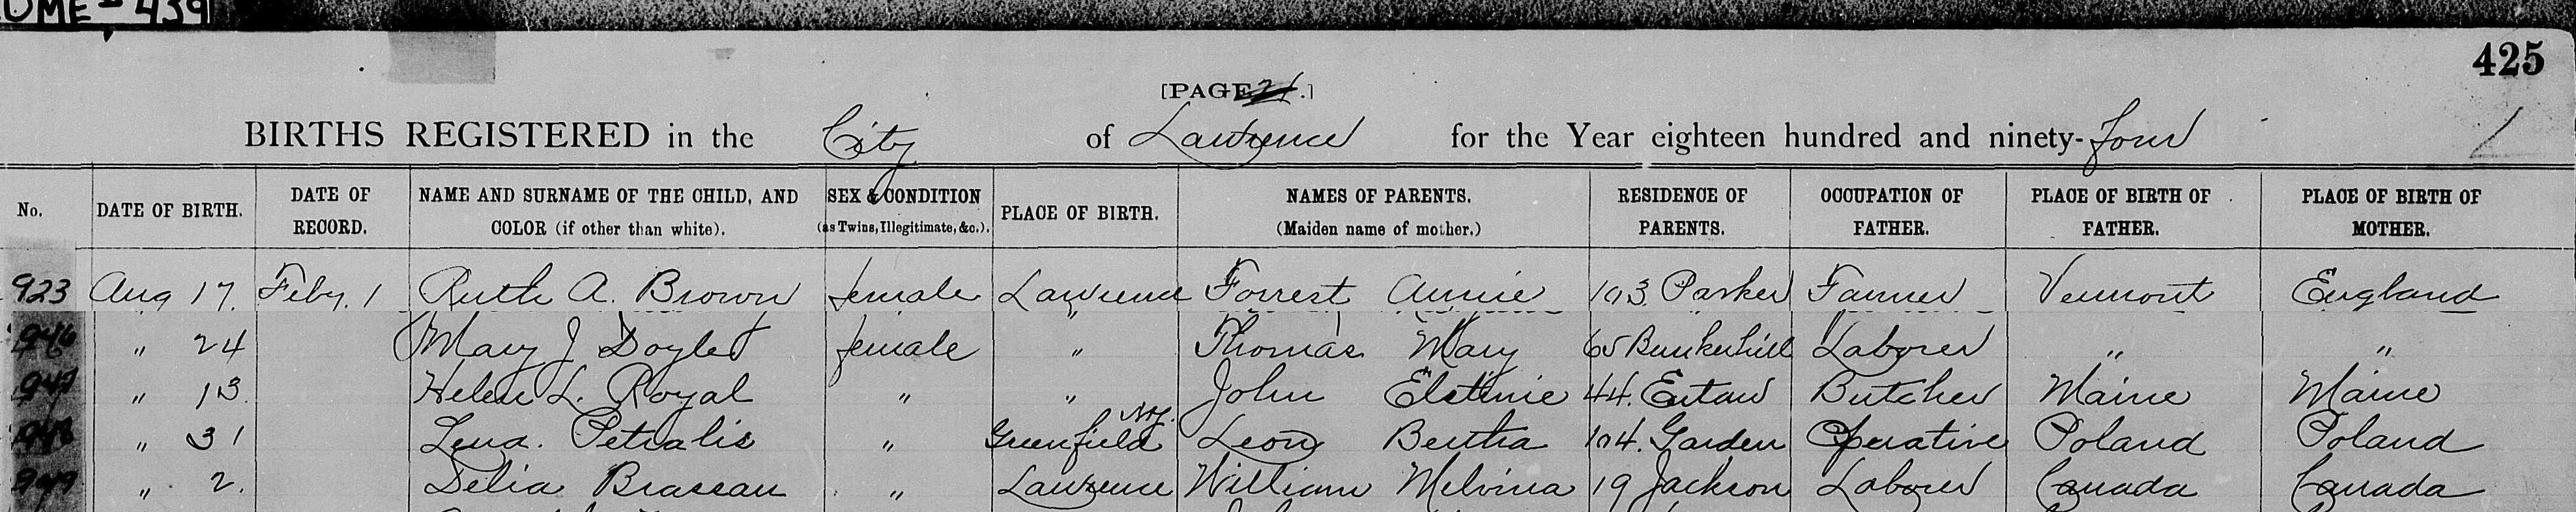 UME - 439
425
[PAGE 21.]
BIRTHS REGISTERED in the City of Lawrence for the Year eighteen hundred and ninety-four
No. DATE OF BIRTH. DATE OF RECORD. NAME AND SURNAME OF THE CHILD, AND COLOR (if other than white). SEX & CONDITION (as Twins, Illegitimate, &c.). PLACE OF BIRTH. NAMES OF PARENTS. (Maiden name of mother.) RESIDENCE OF PARENTS. OCCUPATION OF FATHER. PLACE OF BIRTH OF FATHER. PLACE OF BIRTH OF MOTHER.
923 Aug 17. Feby. 1 Ruth A. Brown female Lawrence Forrest Annie 103 Parker Farmer Vermont England
946 " 24 Mary J Doyle female " Thomas Mary 65 Bunkerhill Laborer " "
947 " 13. Helen L. Royal " " John 44. Eutaw Butcher Maine Maine
948 " 31 Lena. Petralis " Greenfield Leon Bertha 104. Garden Operative Poland Poland
949 " 2. Delia Brassau " Lawrence William Melvina 19 Jackson Laborer Canada Canada